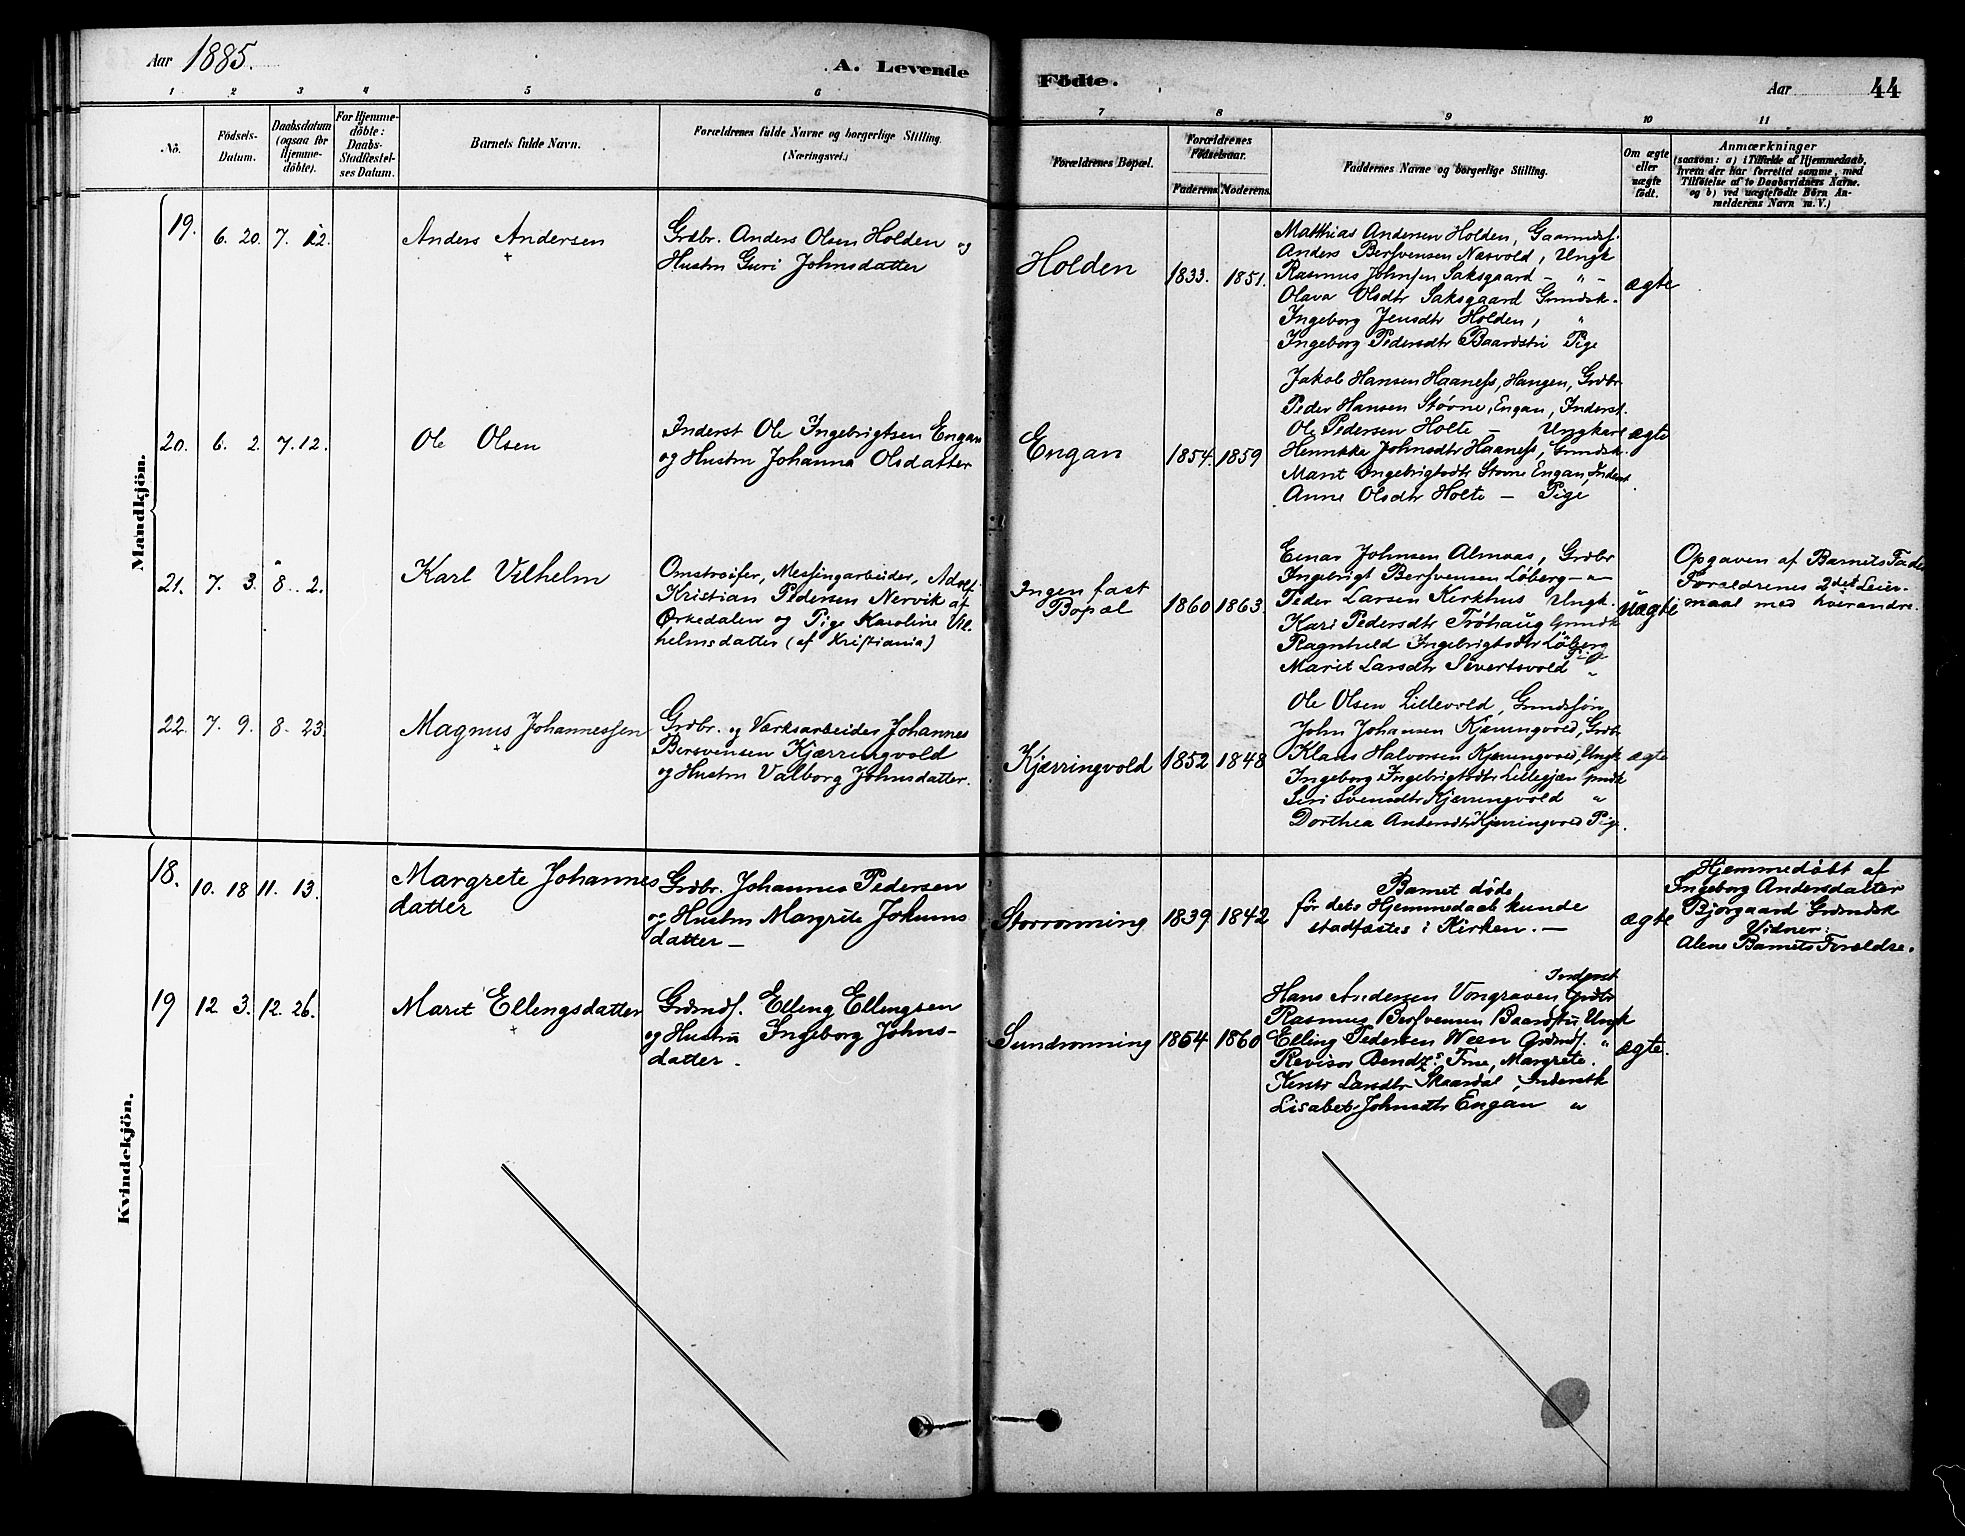 Aar 1885.
A. Levende
Födte.
Aar
44
1
2
3
4
5
6
7
8
9
10
11
No.
Födsels-
Datum.
Daabsdatum
(ogsaa for
Hjemme-
döbte).
For Hjemme-
döbte:
Daabs-
Stadfæstel-
ses Datum.
Barnets fulde Navn.
Forældrenes fulde Navne og borgerlige Stilling.
(Næringsvei.)
Forældrenes Bopæl.
Forældrenes
Födselsaar.
Faderens.
Moderens.
Faddernes Navne og borgerlige Stilling.
Om ægte
eller
uægte
födt.
Anmærkninger
(saasom: a) i Tilfælde af Hjemmedaab,
hvem der har forrettet samme, med
Tilföielse af to Daabsvidners Navne.
og b) ved uægtefödte Börn An-
melderens Navn m. V.)
Mandkjön.
19.
6. 20.
7. 12.
Anders Andersen
+
Grdbr. Anders Olsen Holden og
Hustru Guri Johnsdatter
Holden
1833.
1851.
Matthias Andersen Holden, Gaardmdf.
Anders Bersvensen Næsvold, Ungk
Rasmus Johnsen Saksgaard - " -
Olava Olsdtr Saksgaard Grmdsk.
Ingeborg Jensdtr Holden, "
Ingeborg Pedersdtr Baardstu Pige
ægte
20.
6. 2.
7. 12.
Ole Olsen
Inderst Ole Ingebrigtsen Engan
og Hustru Johanna Olsdatter
Engan
1854.
1859
Jakob Hansen Haaness, Hangen, Grdbr
Peder Hansen Støvne, Engan, Inderst.
Ole Pedersen Holte - Ungkarl
Hennikke Johnsdtr Haaness, Grmdsk.
Marit Ingebrigtsdtr Støvne Engan, Inderst
Anne Olsdtr Holte - Pige
ægte
21.
7. 3.
8. 2.
Karl Vilhelm
Omstreifer, Messingarbeider, Adolf
Kristian Pedersen Nervik af
Orkedalen og Pige Karoline Vil-
helmsdatter (af Kristiania)
Ingen fast
Bopæl
1860
1863.
Einar Johnsen Almaas, Grdbr
Ingebrigt Bersvensen Løberg - " -
Peder Larsen Kirkhus Ungk.
Kari Pedersdtr Trøhaug Grmdk
Ragnhild Ingebrigtsdtr Løberg
Pige
Marit Larsdtr Sivertsvold "
uægte
Opgaven af Barnets Fader
Forældrenes 2det Leier-
maal med hverandre.
22.
7. 9.
8. 23.
Magnus Johannessen
+
Grdbr. og Værksarbeider Johannes
Bersvensen Kjærringvold
og Hustru Valborg Johnsdatter.
Kjærringvold
1852
1848
Ole Olsen Lillevold, Grmdsføn
John Johansen Kjærringvold, Grdbr
Klaus Halvorsen Kjærringvold, Ungk
Ingeborg Ingebrigtsdtr Lillegjæn Grmdk
Siri Svensdtr Kjærringvold "
Dorthea Andersdtr Kjærringvold Pige.
ægte
Kvindekjön.
18.
10. 18
11. 13.
Margrete Johannes
datter
Grdbr. Johannes Pedersen
og Hustru Margrite Johums
datter -
Storrønning
1839
1842
Barnet døde,
før dets Hjemmedaab kunde
stadfæstes i Kirken. -
ægte
Hjemmedøbt af
Ingeborg Andersdatter
Bjørgaard Grdmdsk
Vidner:
Alene Barnets Forældre.
19
12 3.
12. 26.
Marit Ellingsdatter
+
Grdmdf. Elling Ellingsen
og Hustru Ingeborg Johns-
datter.
Sundrønning
1854
1860
Inderst
Hans Andersen Vongraven, Grdbr
Rasmus Bersvensen Baardstu Ungk
Elling Pedersen Ween Grdmdf. "
Revisor Bendz's Frue, Margrete.
Kirsti Larsdtr Skaardal, Indersthk
Lisabet Johnsdtr Engan "
ægte.